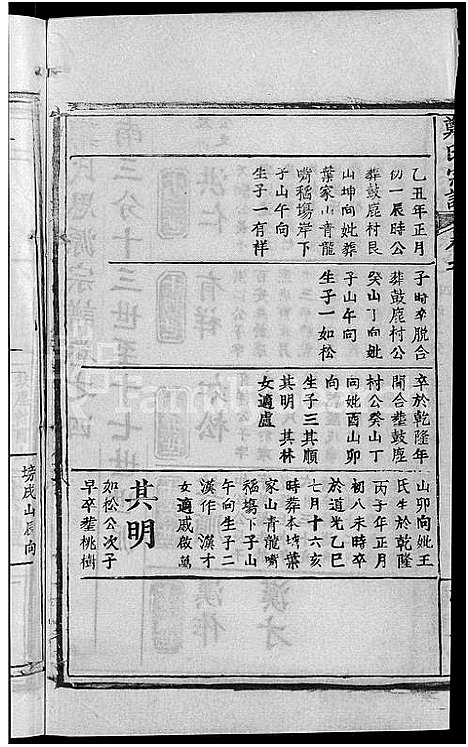 鄭氏宗譜
乙丑年正月
初一辰時公
葬鼓鹿村艮
山坤向妣葬
葉家山青龍
嘴稻塲岸下
子山午向
生子一有祥
子時卒脫合
葬鼓鹿村公
癸山丁向妣
子山午向
生子一如松
卒於乾隆年
間合塟鼓鹿
村公癸山丁
向妣酉山卯
向
生子三其順
其明 其林
女適盧
山卯向妣王
氏生於乾隆
丙子年正月
初八未時卒
於道光乙巳
七月十六亥
時葬本塝葉
家山青龍嘴
稻塲下子山
午向生子二
漢作 漢才
女適戚啟萬
其明
如松公次子
早卒塟桃樹
塝戌山辰向